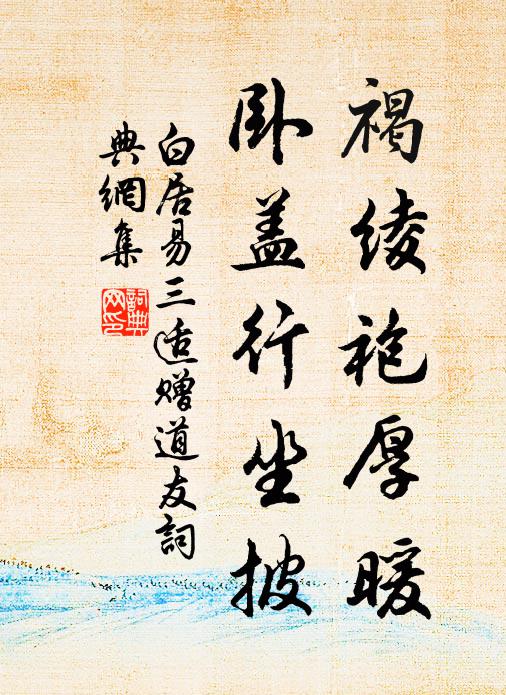 褐绫袍厚暖
卧盖行坐披
白居易三适赠道友詞
典網集
詞典
网印